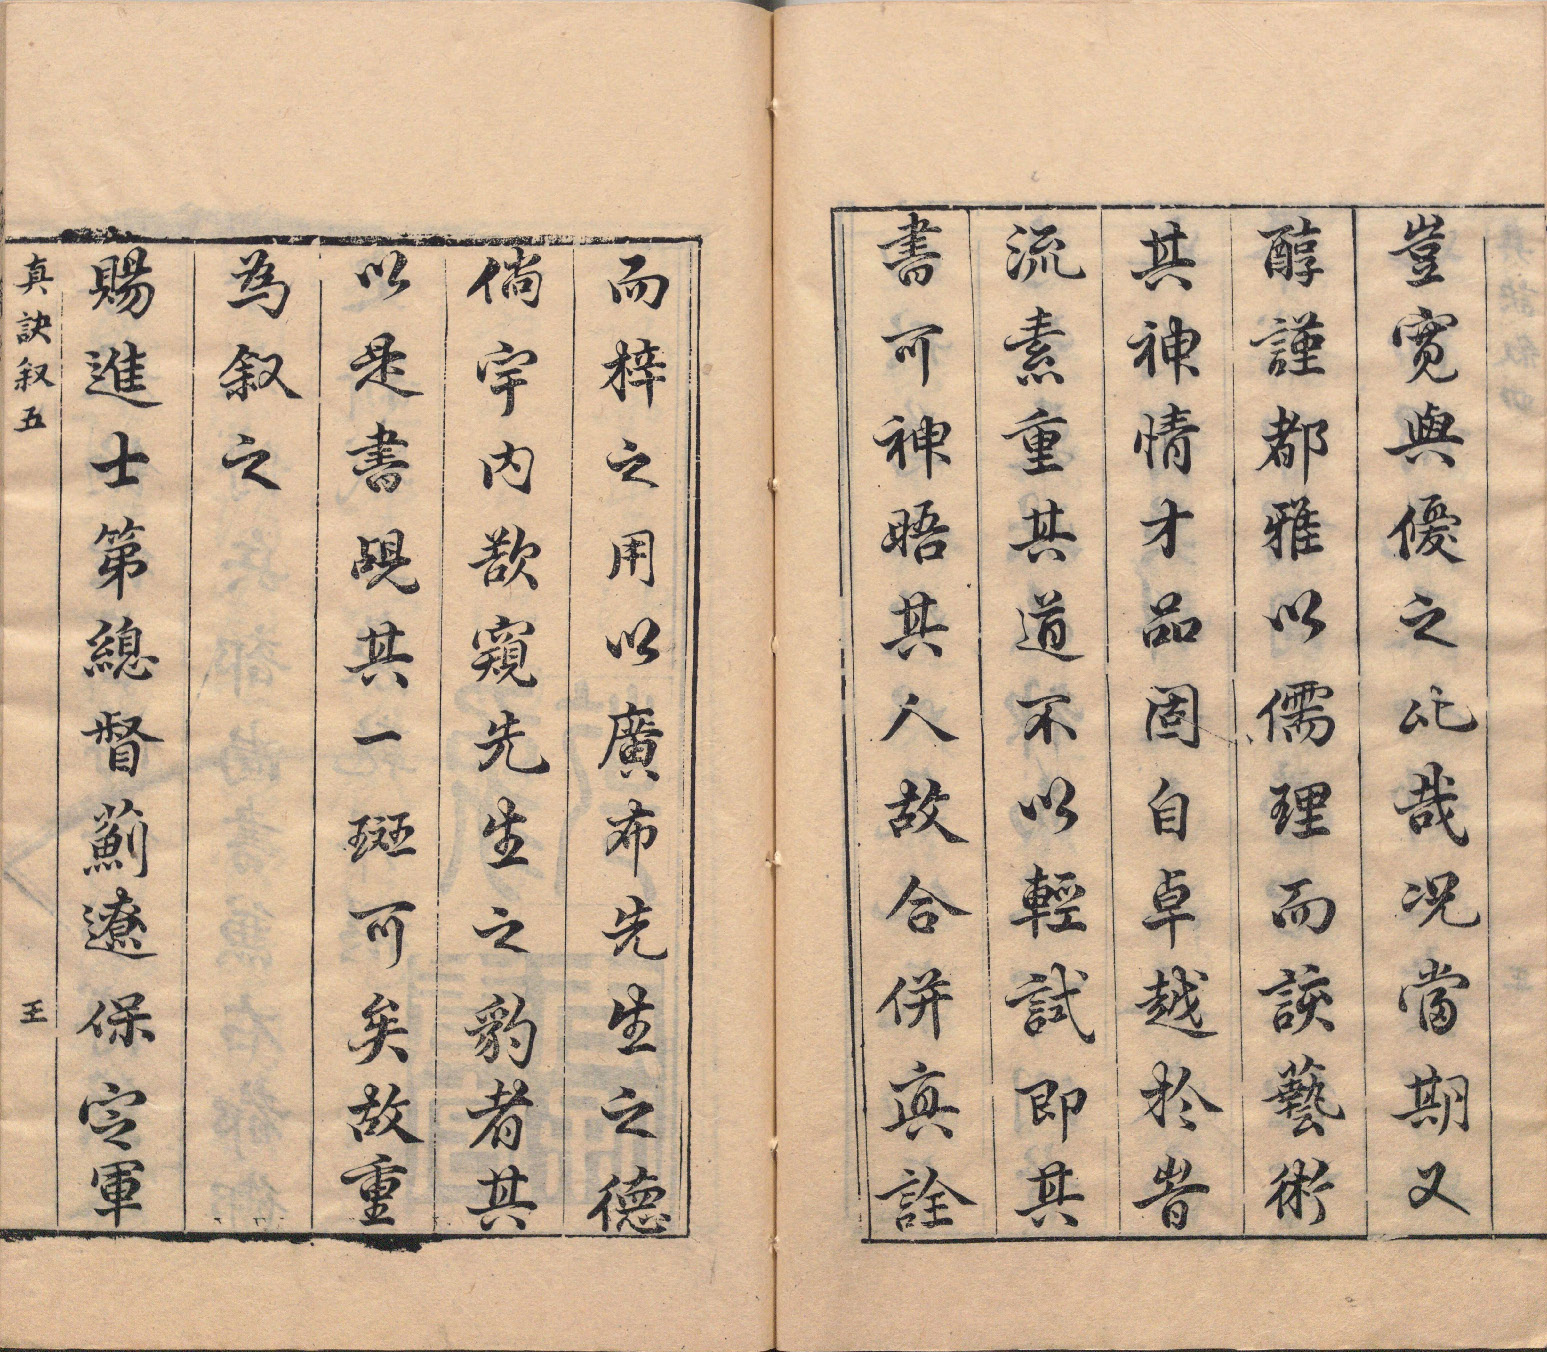 豈寛與優之比哉况當期又
醇謹都雅以儒理而談藝術
其神情才品固自卓越於眥
流素重其道不以輕試即其
書可神晤其人故合併真詮
而梓之用以廣布先生之德
倘宇内歆窺先生之豹者其
以是書覘其一斑可矣故重
為叙之
賜進士第總督薊遼保定軍
真訣叙五
王